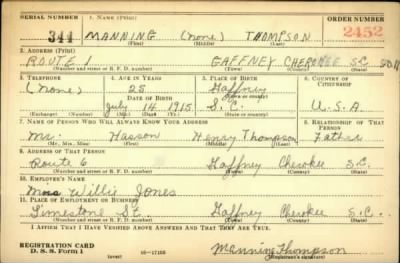 SERIAL NUMBER 1. NAME (Print) ORDER NUMBER
344 MANNING (none) THOMPSON 2452
(First) (Middle) (Last)
2. ADDRESS (Print)
ROUTE 1 GAFFNEY CHEROKEE S.C.
(Number and street or R. F. D. number) (Town) (County) (State)
3. TELEPHONE 4. AGE IN YEARS 5. PLACE OF BIRTH 6. COUNTRY OF CITIZENSHIP
(none) 25 Gaffney
DATE OF BIRTH (Town or county)
July 14 1915 S.C. U.S.A
(Exchange) (Number) (Mo.) (Day) (Yr.) (State or country)
7. NAME OF PERSON WHO WILL ALWAYS KNOW YOUR ADDRESS 8. RELATIONSHIP OF THAT PERSON
Mr. Hasson Henry Thompson Father
(Mr., Mrs., Miss) (First) (Middle) (Last)
9. ADDRESS OF THAT PERSON
Route 6 Gaffney Cherokee S.C.
(Number and street or R. F. D. number) (Town) (County) (State)
10. EMPLOYER'S NAME
Willie Jones
11. PLACE OF EMPLOYMENT OR BUSINESS
Limestone St. Gaffney Cherokee S.C.
(Number and street or R. F. D. number) (Town) (County) (State)
I AFFIRM THAT I HAVE VERIFIED ABOVE ANSWERS AND THAT THEY ARE TRUE.
REGISTRATION CARD
D. S. S. Form 1 (over) 16—17105 Manning Thompson
(Registrant's signature)